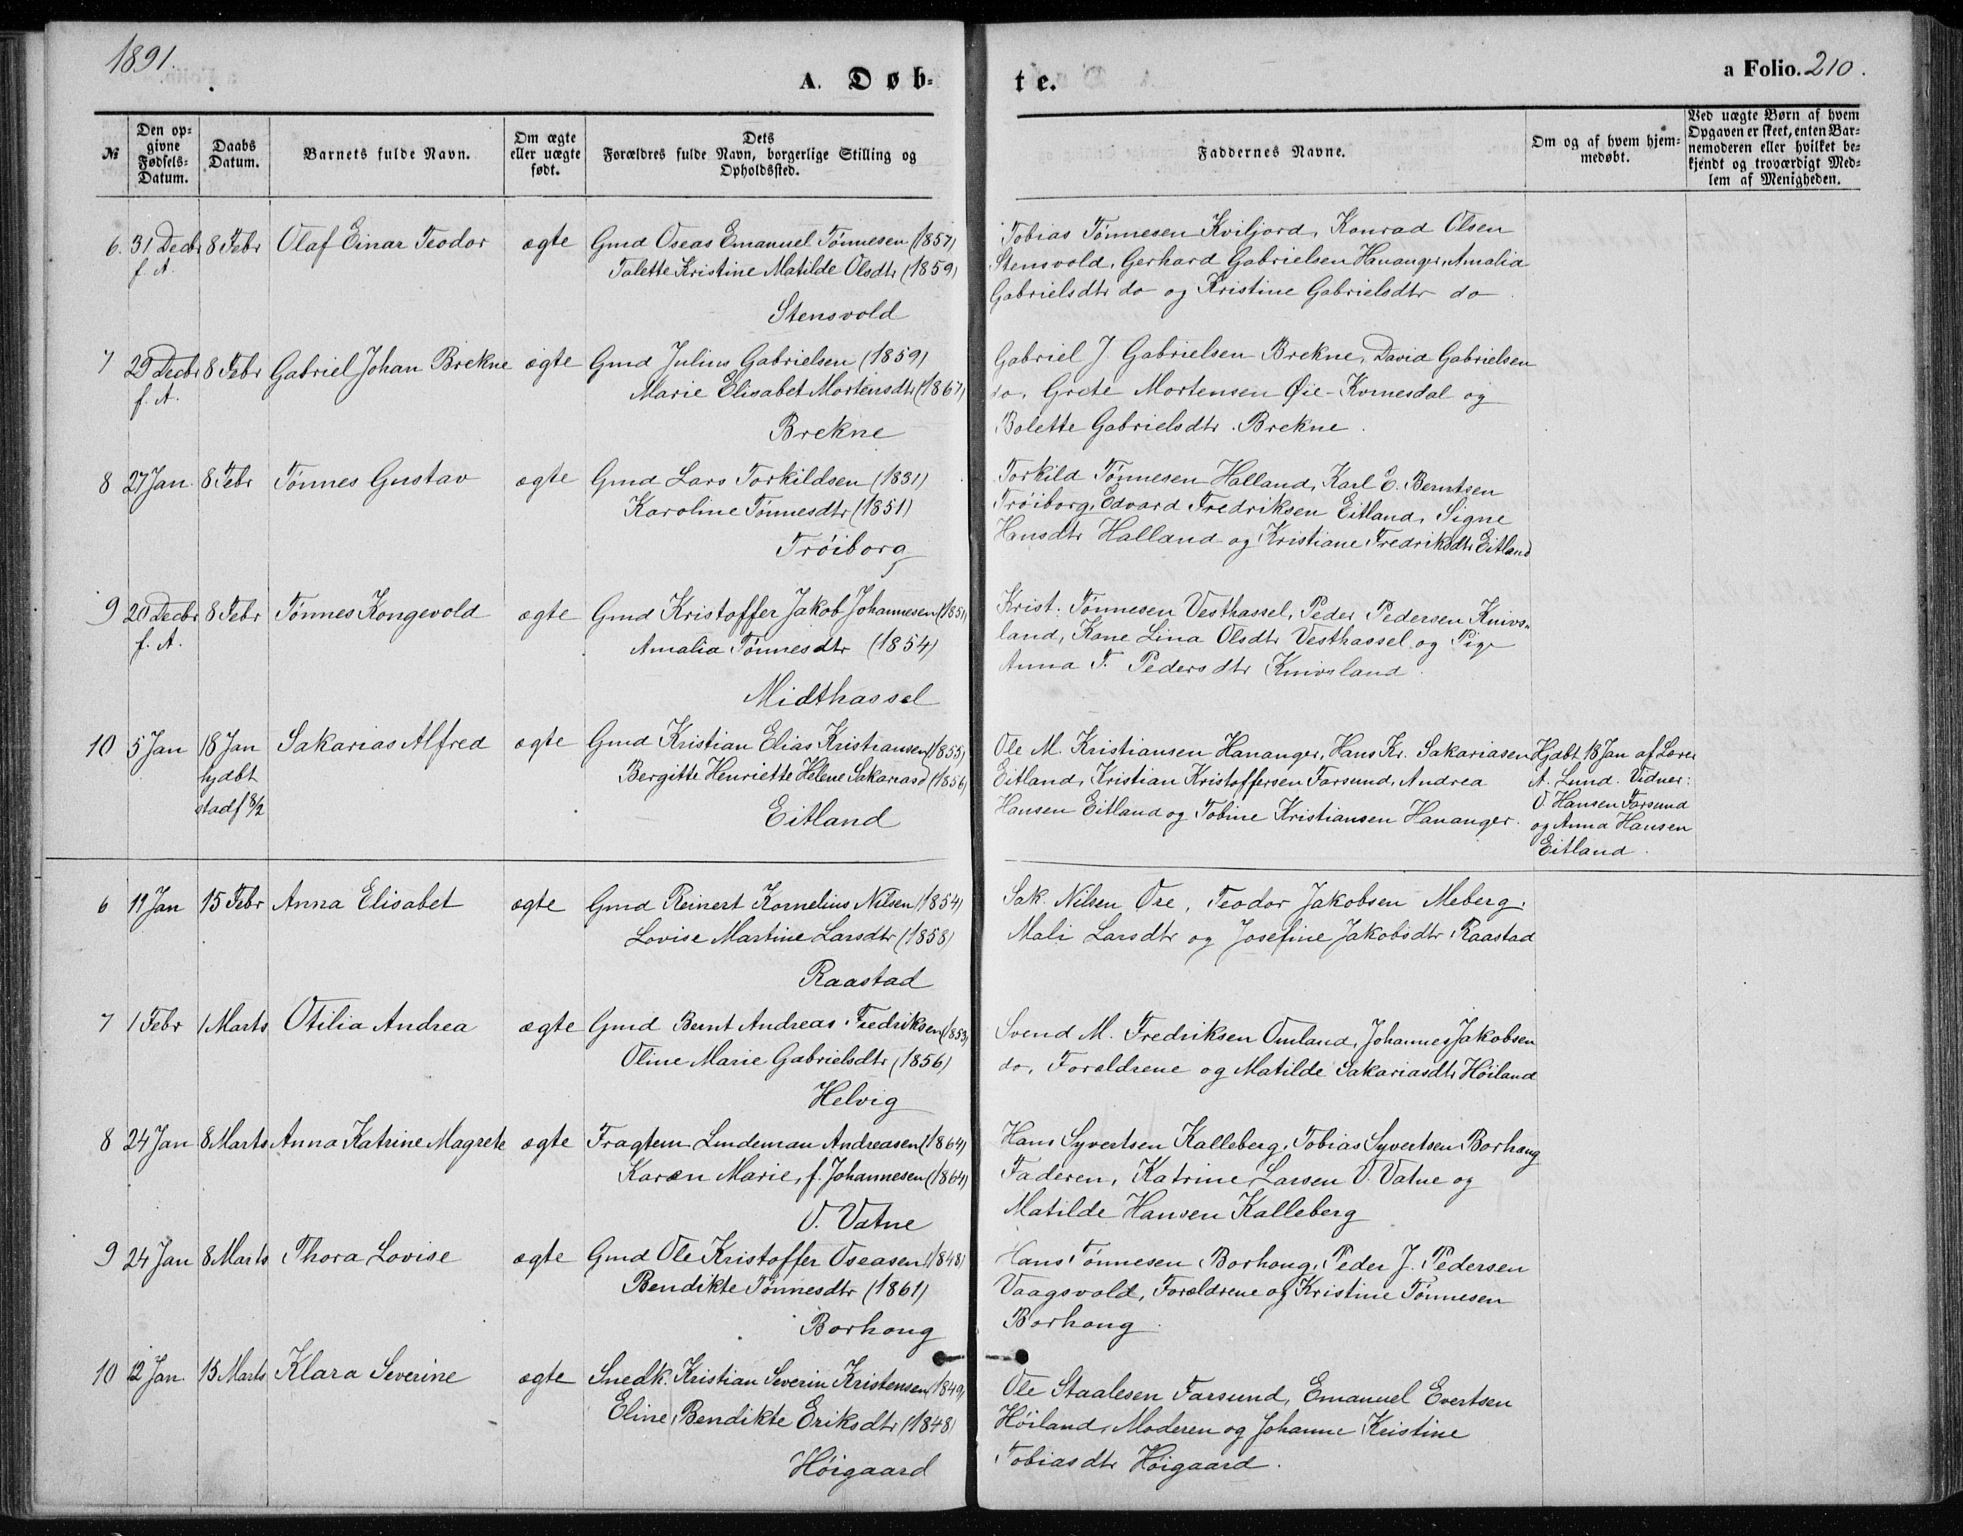 1891.
A. Døb-
te.
a Folio. 210.
№
Den op-
givne
Fødsels-
Datum.
Daabs
Datum.
Barnets fulde Navn.
Om ægte
eller uægte
født.
Dets
Forældres fulde Navn, borgerlige Stilling og
Opholdssted.
Faddernes Navne.
Om og af hvem hjem-
medøbt.
Ved uægte Børn af hvem
Opgaven er skeet, enten Bar-
nemoderen eller hvilket be-
kjendt og troværdigt Med-
lem af Menigheden.
6. 31 Decbr 8 Febr Olaf Einar Teodor ægte Gmd Oseas Emanuel Tønnesen (1857)
f. A. Talette Kristine Matilde Olsdtr (1859)
Stensvold
Tobias Tønnesen Kviljord, Konrad Olsen
Stensvold, Gerhard Gabrielsen Hananger, Amalia
Gabrielsdtr do og Kristine Gabrielsdtr do.
7 29 Decbr 8 Febr Gabriel Johan Brekne ægte Gmd Julius Gabrielsen (1859)
f. A. Marie Elisabet Mortensdtr (1867)
Brekne
Gabriel J. Gabrielsen Brekne, David Gabrielsen
do, Grete Mortensen Øie-Kvinesdal og
Bolette Gabrielsdtr. Brekne.
8 27 Jan 8 Febr Tønnes Gustav ægte Gmd Lars Torkildsen (1831)
Karoline Tønnesdtr (1851)
Trøiborg
Torkild Tønnesen Halland, Karl E. Berntsen
Trøiborg, Edvard Fredriksen Eitland, Signe
Hansdtr Halland og Kristiane Fredriksdtr Eitland
9 20 Decbr 8 Febr Tønnes Kongevold ægte Gmd Kristoffer Jakob Johannesen (1851)
f. A. Amalia Tønnesdtr (1854)
Midthassel
Krist. Tønnesen Vesthassel, Peder Pedersen Knivs-
land, Kone Lina Olsdtr Vesthassel og Pige
Anna T. Pedersdtr Knivsland.
10 5 Jan 18 Jan Sakarias Alfred ægte Gmd Kristian Elias Kristiansen (1855)
hjdbt Bergitte Henriette Helene Sakariasd (1856)
stadf 8/2 Eitland
Ole M. Kristiansen Hananger, Hans Kr. Sakariasen
Eitland, Kristian Kristoffersen Farsund, Andrea
Hansen Eitland og Tobine Kristiansen Hananger.
Hjdbt 18 Jan af Lærer
A. Lund. Vidner:
O. Hansen Farsund
og Anna Hansen
Eitland.
6 11 Jan 15 Febr Anna Elisabet ægte Gmd Reinert Kornelius Nilsen (1854)
Lovise Martine Larsdtr (1858)
Raastad
Sak. Nilsen Ore, Teodor Jakobsen Meberg,
Mali Larsdtr og Josefine Jakobsdtr Raastad
7 1 Febr 1 Marts Otilia Andrea ægte Gmd Bernt Andreas Fredriksen (1853)
Oline Marie Gabrielsdtr (1856)
Helvig
Svend M. Fredriksen Omland, Johannes Jakobsen
do, Forældrene og Matilde Sakariasdtr Høiland
8 24 Jan 8 Marts Anna Katrine Magrete ægte Fragtem Lindeman Andreasen (1864)
Karen Marie, f. Johannesen (1864)
V. Vatne
Hans Syvertsen Kalleberg, Tobias Syvertsen Borhaug
Faderen, Katrine Larsen V. Vatne og
Matilde Hansen Kalleberg
9 24 Jan 8 Marts Thora Lovise ægte Gmd Ole Kristoffer Oseasen (1848)
Bendikte Tønnesdtr (1861)
Borhaug
Hans Tønnesen Borhaug, Peder J. Pedersen
Vaagsvold, Forældrene og Kristine Tønnesen
Borhaug.
10 12 Jan 15 Marts Klara Severine ægte Snedk. Kristian Severin Kristensen (1849)
Eline Bendikte Eriksdtr (1848)
Høigaard
Ole Staalesen Farsund, Emanuel Evertsen
Høiland, Moderen og Johanne Kristine
Tobiasdtr Høigaard.